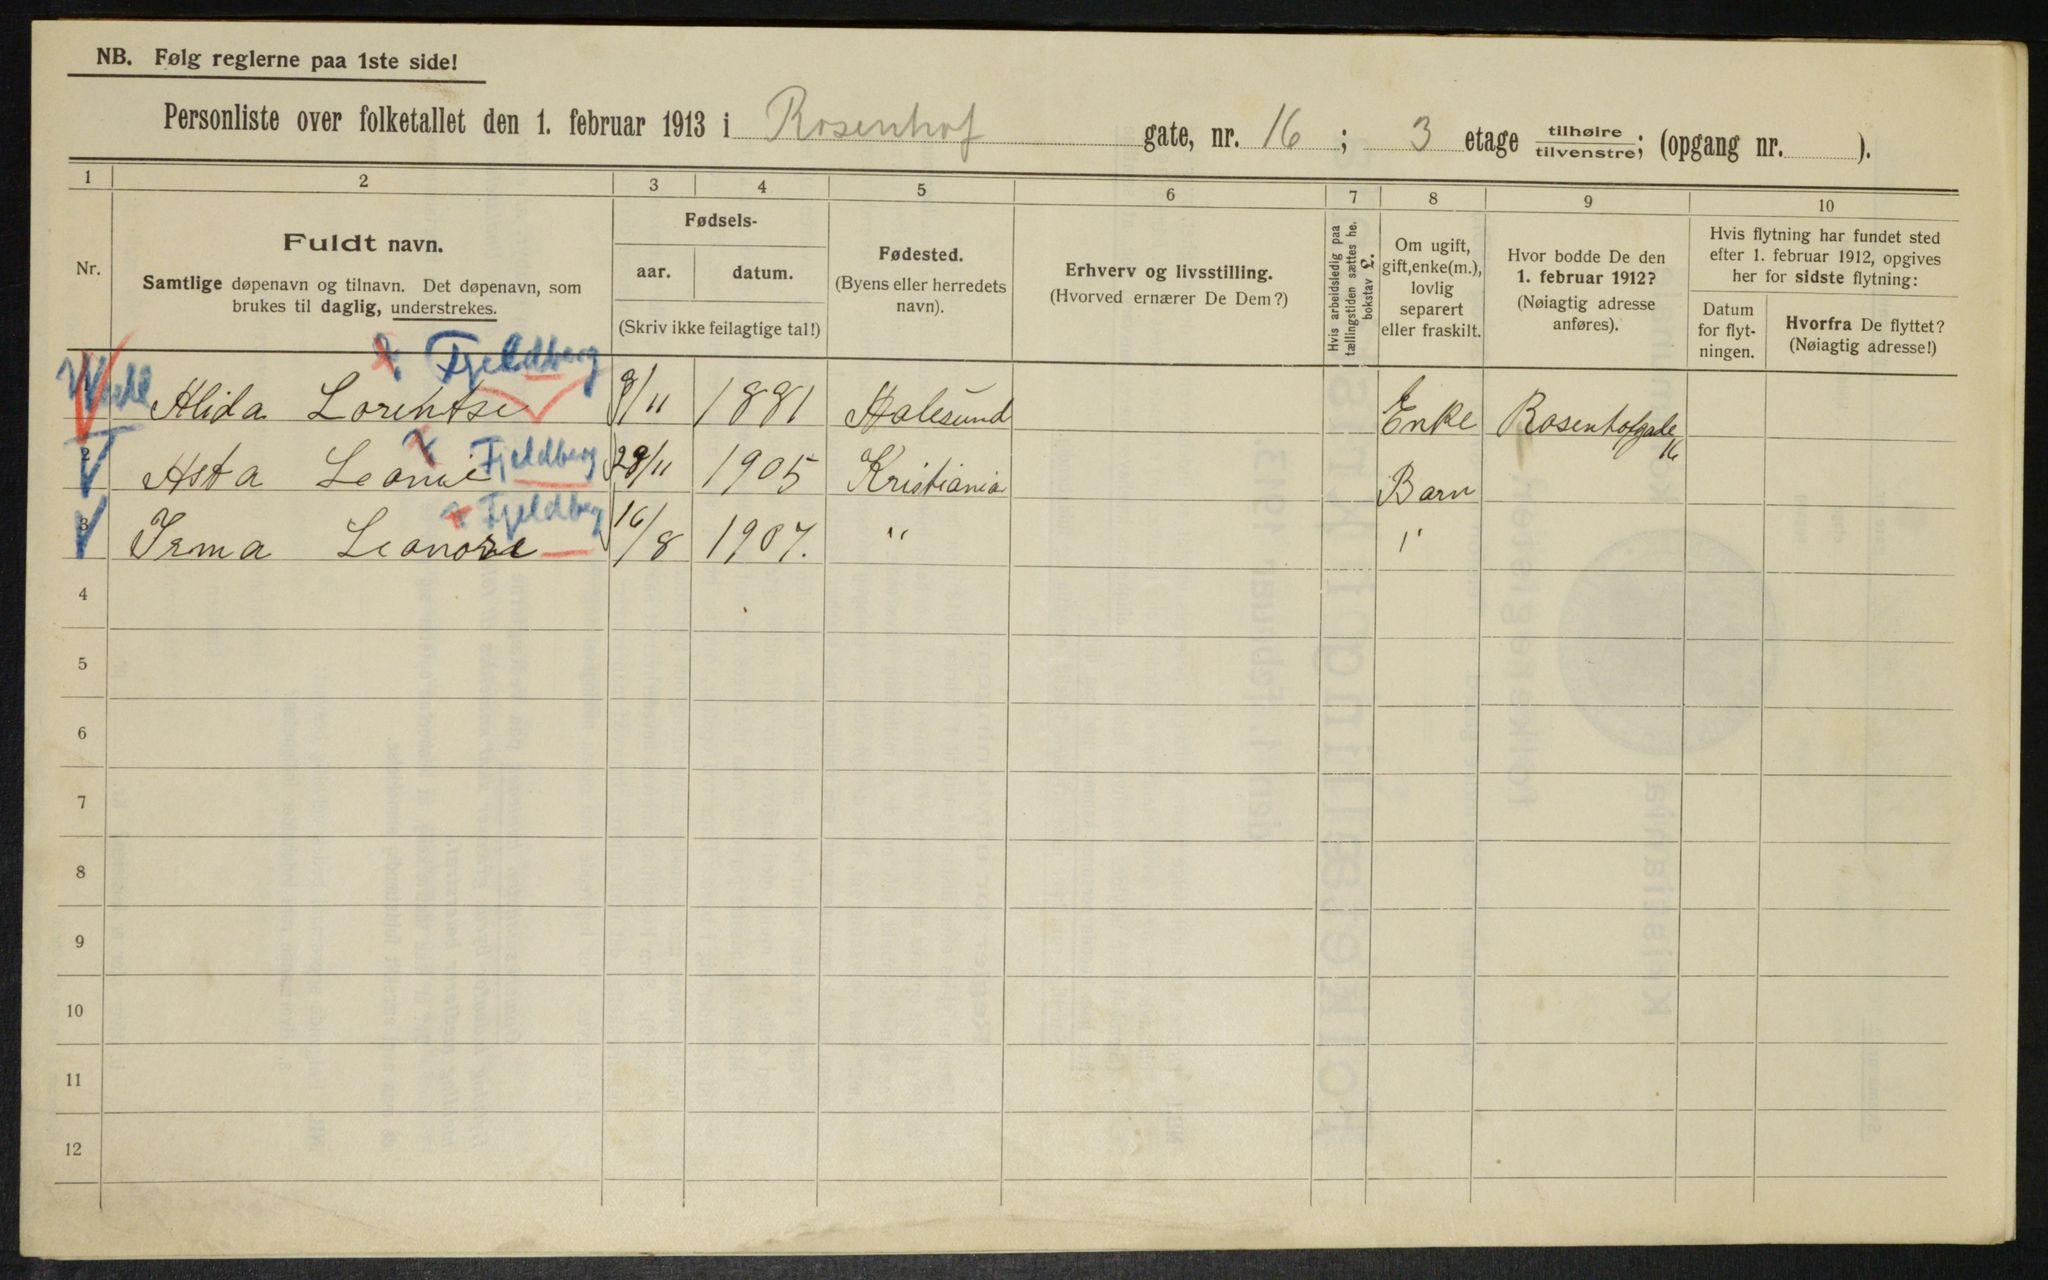 NB. Følg reglerne paa 1ste side!
Personliste over folketallet den 1. februar 1913 i Rosenhof gate, nr. 16 ; 3 etage tilhøire/tilvenstre; (opgang nr. ).
1 2 3 4 5 6 7 8 9 10
Nr.
Fuldt navn.
Samtlige døpenavn og tilnavn. Det døpenavn, som
brukes til daglig, understrekes.
Fødsels-
aar. datum.
(Skriv ikke feilagtige tal!)
Fødested.
(Byens eller herredets
navn).
Erhverv og livsstilling.
(Hvorved ernærer De Dem?)
Hvis arbeidsledig paa
tællingstiden sættes he.
bokstav £.
Om ugift,
gift, enke(m.),
lovlig
separert
eller fraskilt.
Hvor bodde De den
1. februar 1912?
(Nøiagtig adresse
anføres).
Hvis flytning har fundet sted
efter 1. februar 1912, opgives
her for sidste flytning:
Datum
for flyt-
ningen.
Hvorfra De flyttet?
(Nøiagtig adresse!)
x Fjeldberg
1 Alida Lorentse 9/11 1881 Aalesund Enke Rosenhofgade
16
x Fjeldberg
2 Asta Leonie 29/11 1905 Kristiania Barn
x Fjeldberg
3 Irma Leanore 16/8 1907. " "
4
5
6
7
8
9
10
11
12